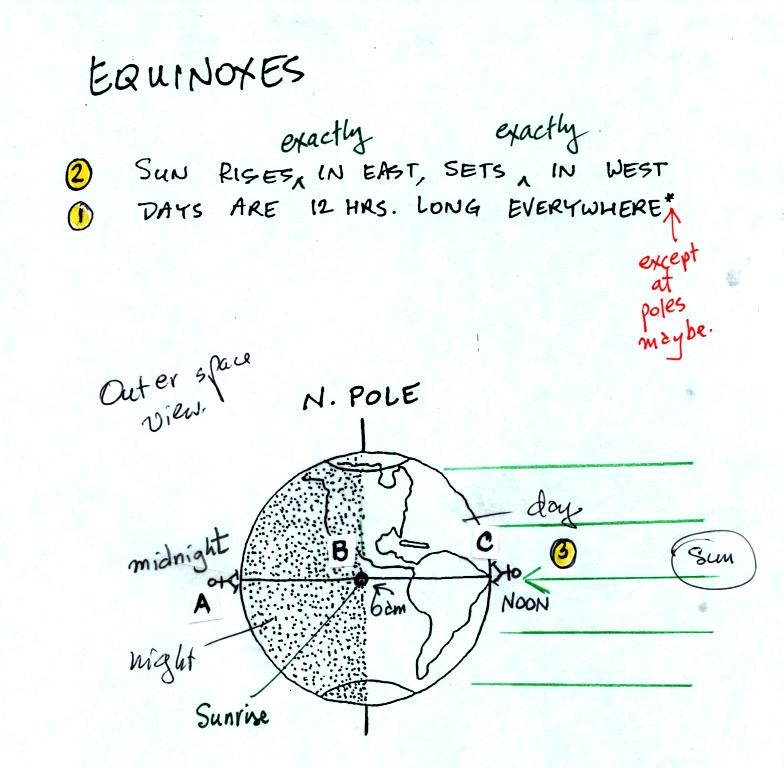 EQUINOXES
exactly exactly
② SUN RISES‸ IN EAST, SETS ‸ IN WEST
① DAYS ARE 12 HRS. LONG EVERYWHERE*
except
at
poles
maybe.
Outer space
view.
N. POLE
day
midnight
B
C
③
Sun
A
6am
NOON
night
Sunrise